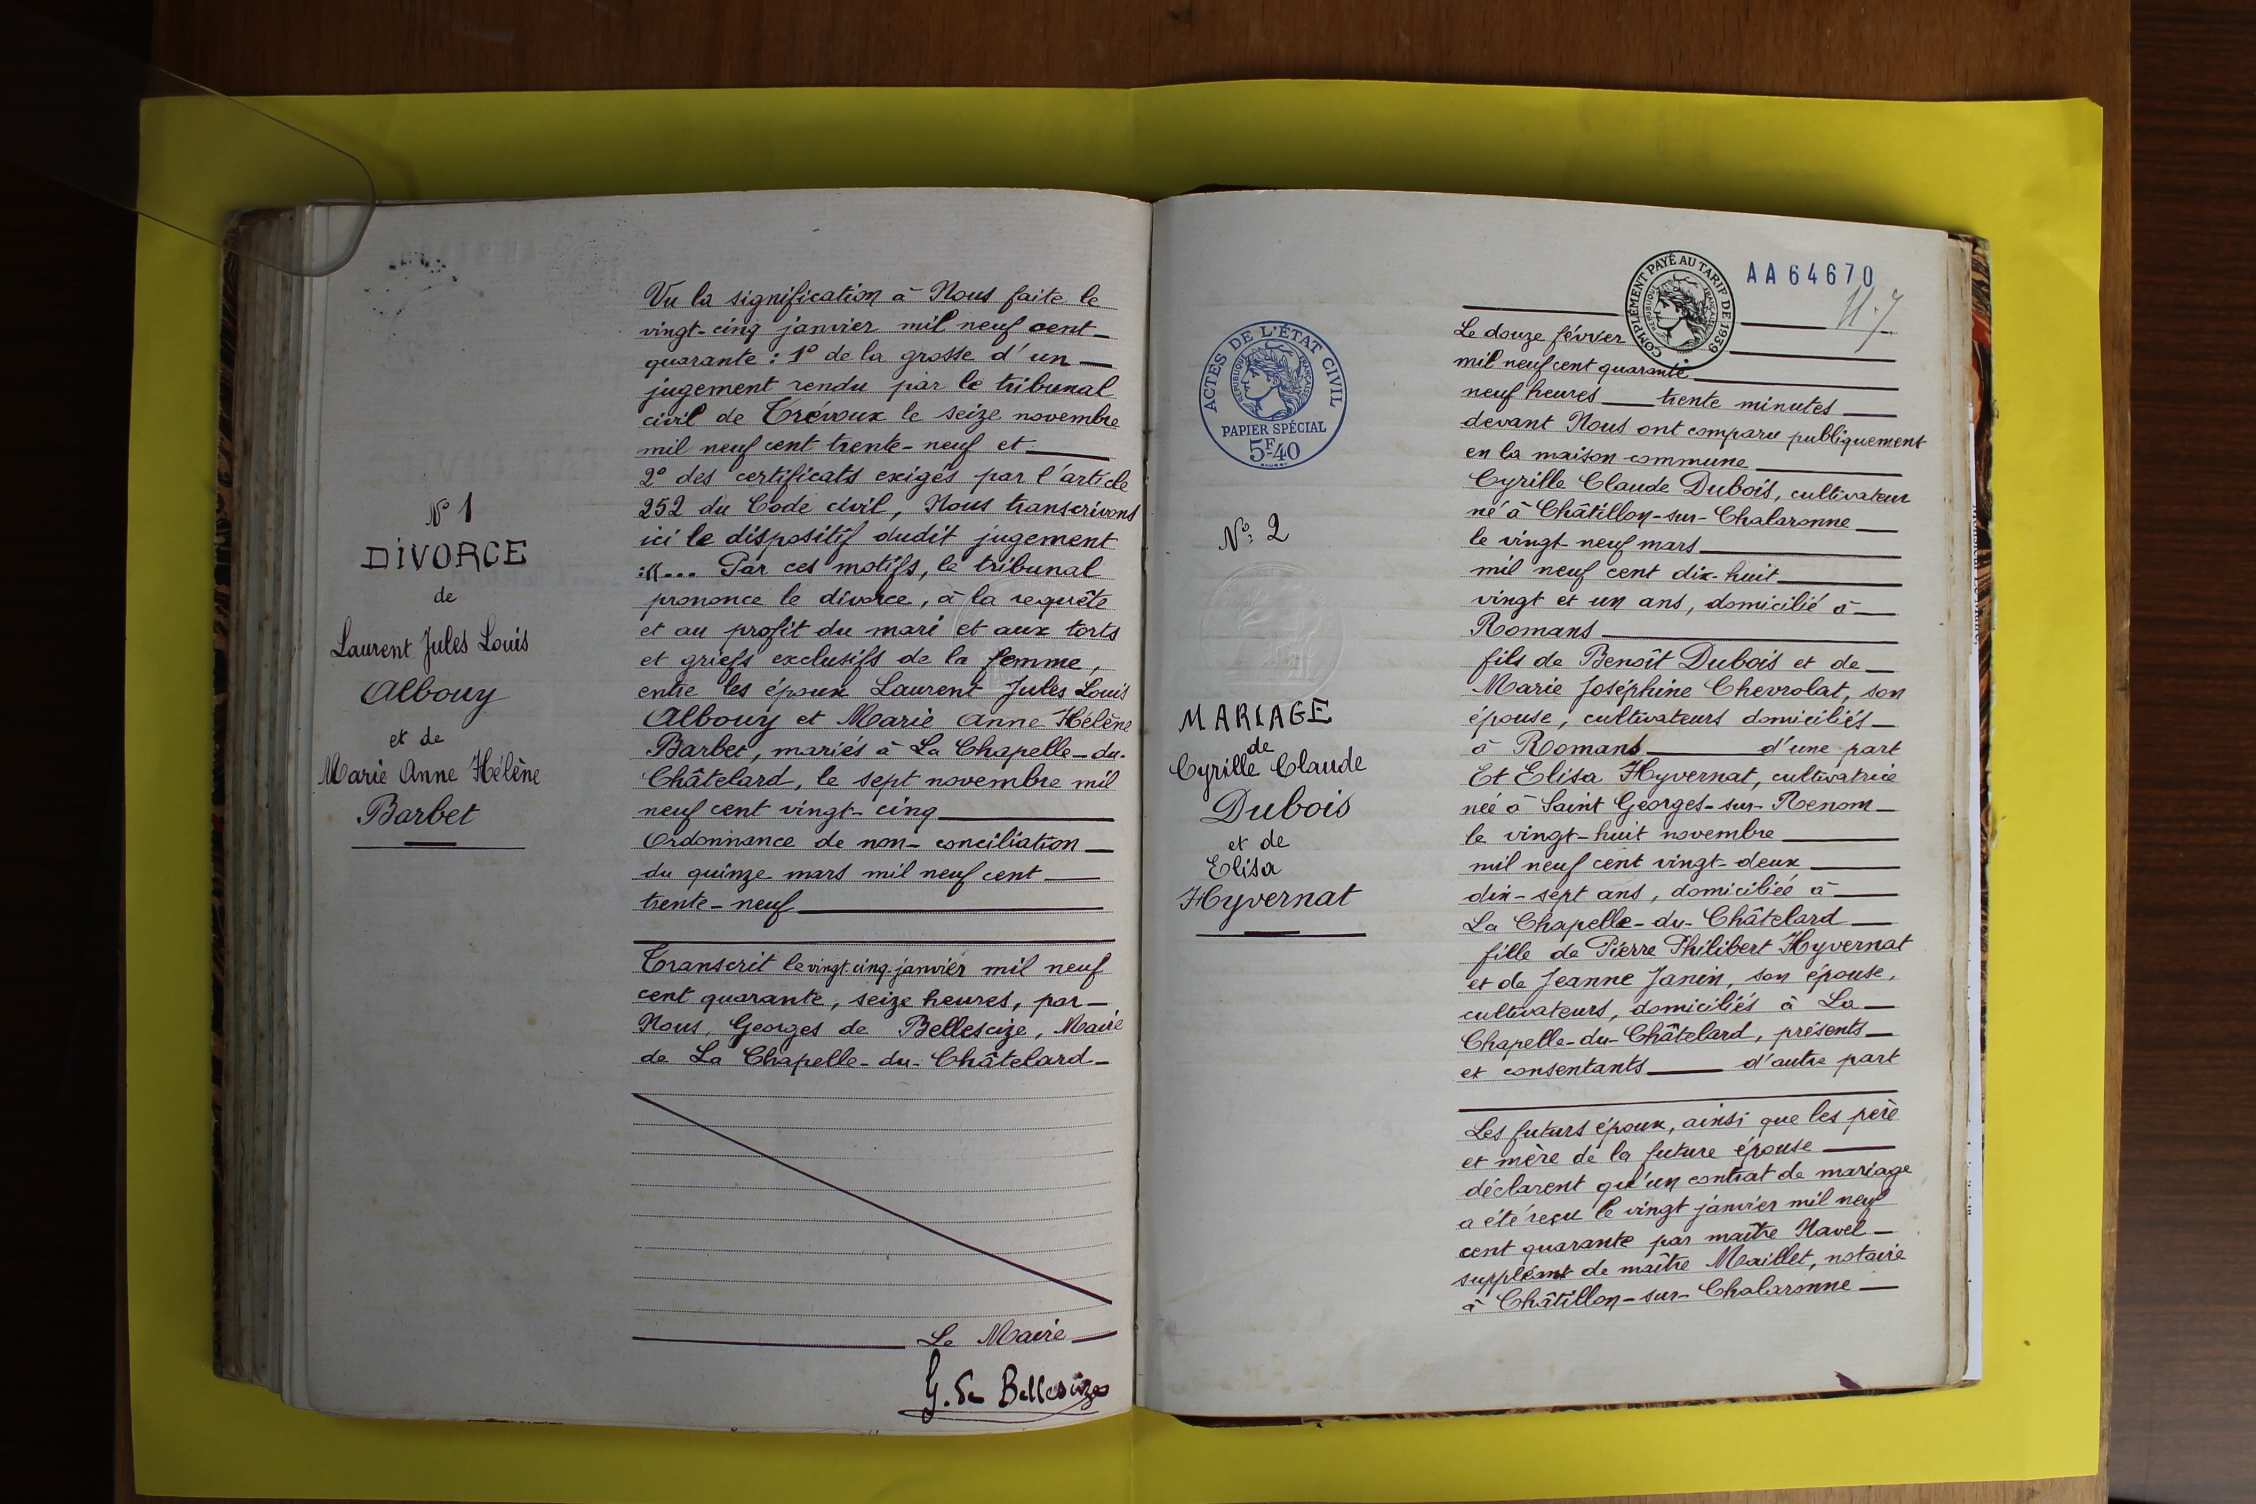 N° 1
DIVORCE
de
Laurent Jules Louis
Albouy
et de
Marie Anne Hélène
Barbet
Vu la signification à Nous faite le
vingt-cinq janvier mil neuf cent
quarante : 1° de la grosse d'un
jugement rendu par le tribunal
civil de Trévoux le seize novembre
mil neuf cent trente-neuf et
2° des certificats exigés par l'article
252 du Code civil, Nous transcrivons
ici le dispositif dudit jugement
:«... Par ces motifs, le tribunal
prononce le divorce, à la requête
et au profit du mari et aux torts
et griefs exclusifs de la femme,
entre les époux Laurent Jules Louis
Albouy et Marie Anne Hélène
Barbet, mariés à La Chapelle-du-
Châtelard, le sept novembre mil
neuf cent vingt-cinq
Ordonnance de non-conciliation
du quinze mars mil neuf cent
trente-neuf
Transcrit le vingt-cinq janvier mil neuf
cent quarante, seize heures, par
Nous, Georges de Bellescize, Maire
de La Chapelle-du-Châtelard
Le Maire
G. de Bellescize
ACTES DE L'ÉTAT CIVIL
RÉPUBLIQUE FRANÇAISE
PAPIER SPÉCIAL
5F.40
N°: 2
MARIAGE
de
Cyrille Claude
Dubois
et de
Elisa
Hyvernat
COMPLÉMENT PAYÉ AU TARIF DE 1939
RÉPUBLIQUE FRANÇAISE
AA64670
Le douze février
mil neuf cent quarante
neuf heures trente minutes
devant Nous ont comparu publiquement
en la maison commune
Cyrille Claude Dubois, cultivateur
né à Châtillon-sur-Chalaronne
le vingt-neuf mars
mil neuf cent dix-huit
vingt et un ans, domicilié à
Romans
fils de Benoît Dubois et de
Marie Joséphine Chevrolat, son
épouse, cultivateurs domiciliés
à Romans d'une part
Et Elisa Hyvernat, cultivatrice
née à Saint Georges-sur-Renom
le vingt-huit novembre
mil neuf cent vingt-deux
dix-sept ans, domiciliée à
La Chapelle-du-Châtelard
fille de Pierre Philibert Hyvernat
et de Jeanne Janin, son épouse,
cultivateurs, domiciliés à La
Chapelle-du-Châtelard, présents
et consentants d'autre part
Les futurs époux, ainsi que les père
et mère de la future épouse
déclarent qu'un contrat de mariage
a été reçu le vingt janvier mil neuf
cent quarante par maître Navel
suppléant de maître Maillet, notaire
à Châtillon-sur-Chalaronne